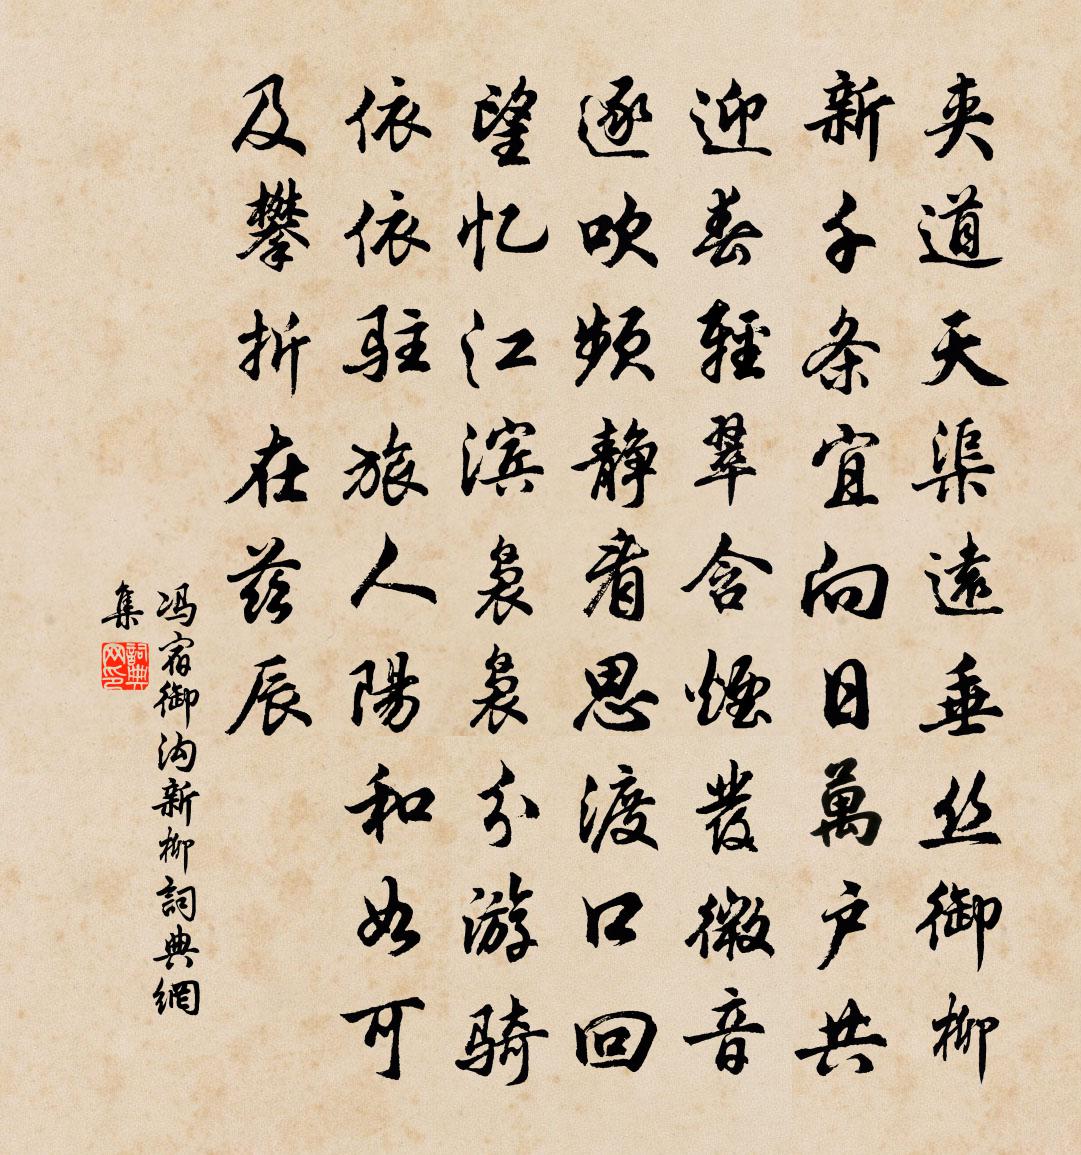 夹道天渠遠垂丝御柳
新千条宜向日萬户共
迎春輕翠含煙發微音
逐吹频静看思渡口回
望忆江滨袅袅分游骑
依依駐旅人陽和如可
及攀折在兹辰
冯宿御沟新柳詞典網
集
詞典网印